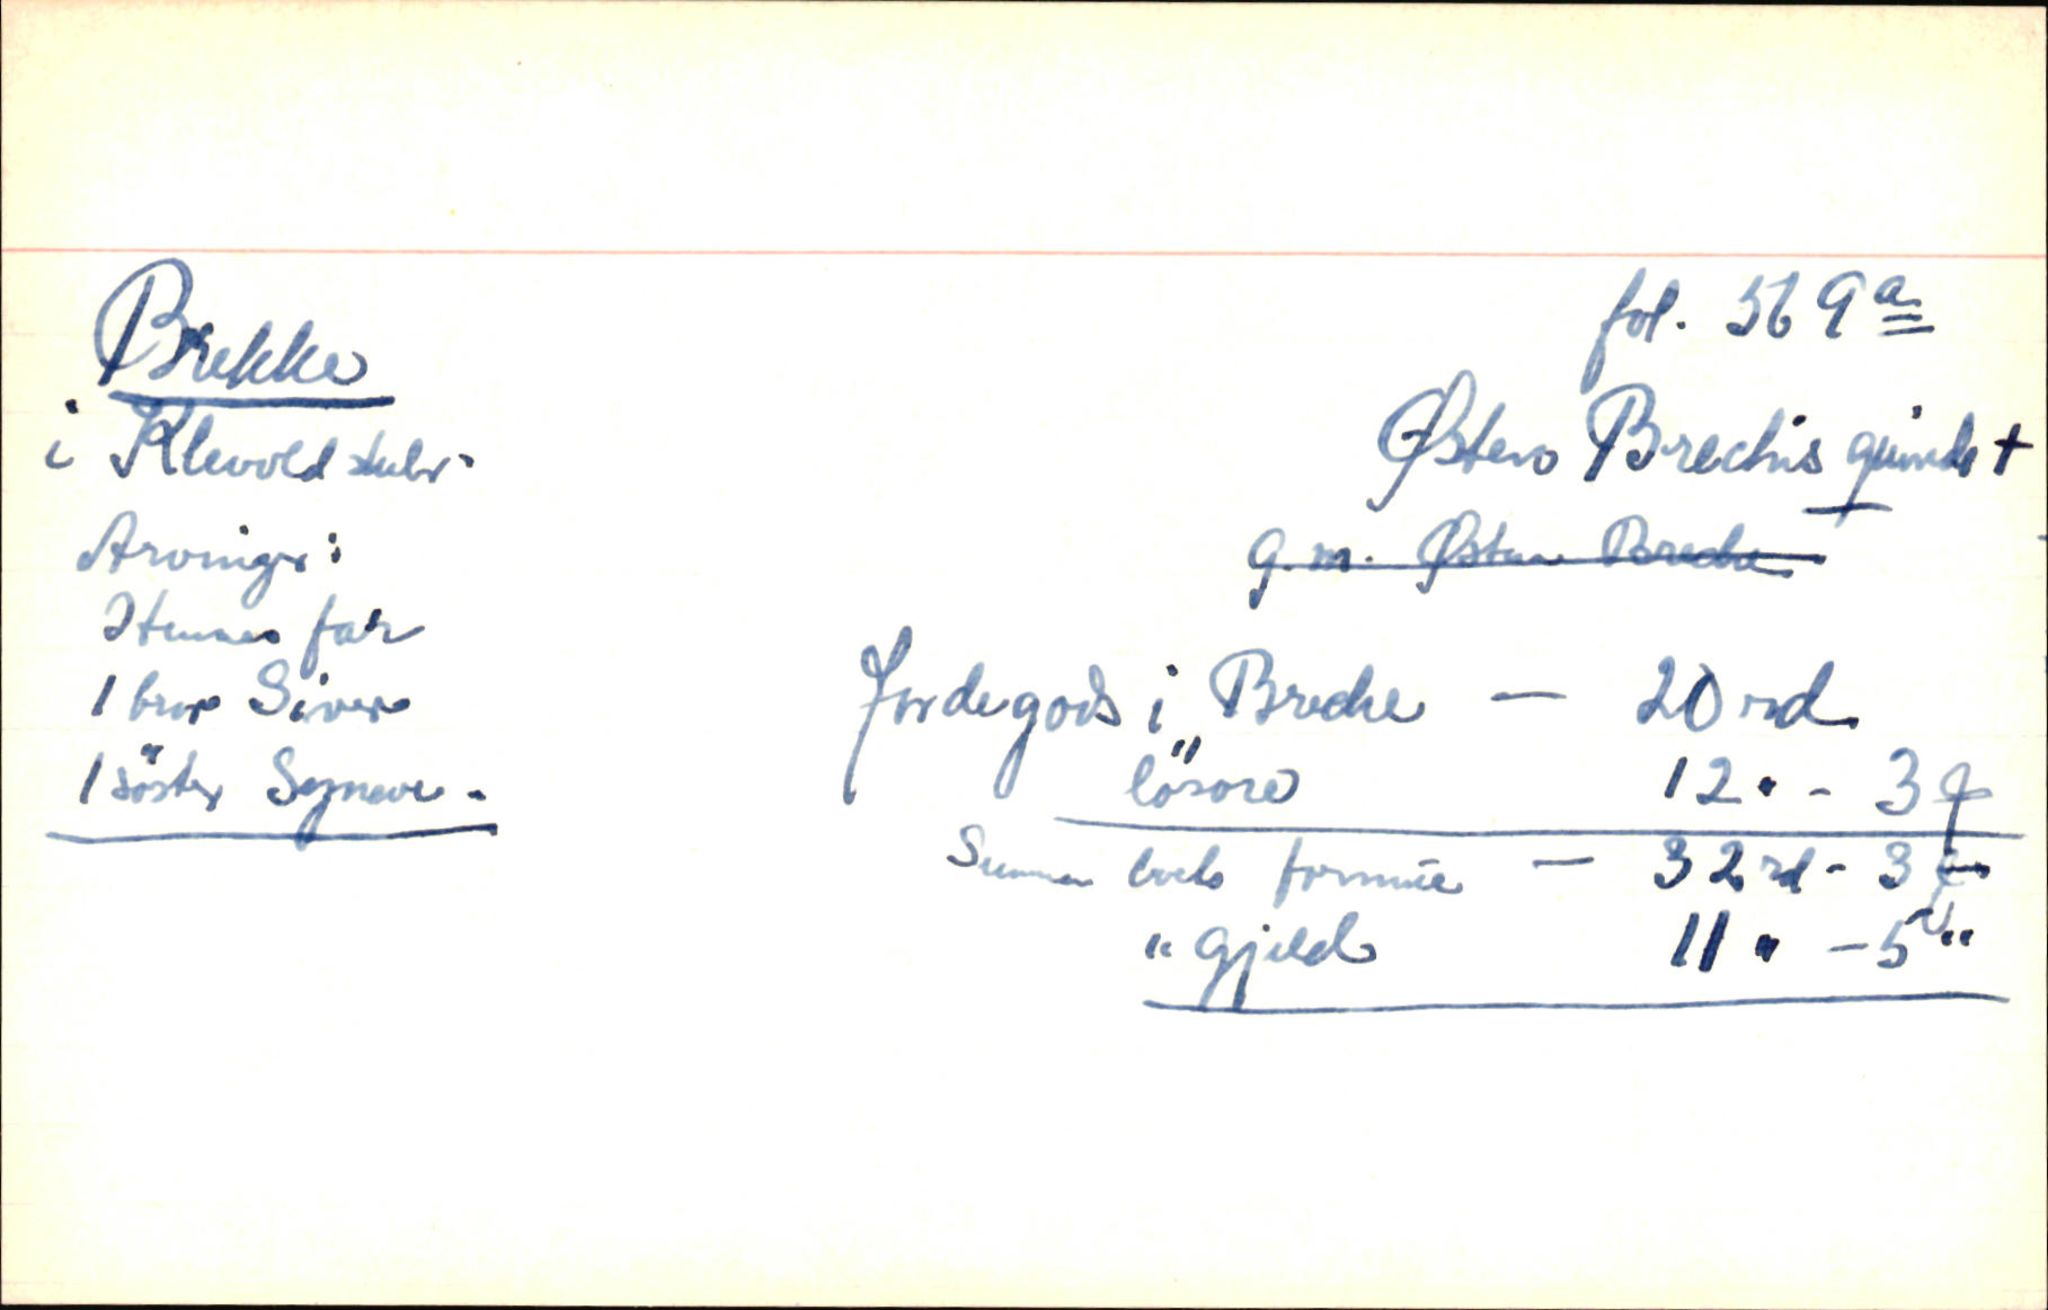 Brekke
i Klevold skibr.
Arvinger:
Hennes far
1 bror Siver
1 söster Syneve.
fol. 569 a
Østen Brechis quinde +
g.m. Østen Breche
Jordegods i Breche — 20 rd.
" lösöre 12 " - 3 ƒ
Summa boets formue — 32 rd - 3 ƒ
" gjeld 11 " - 5 "